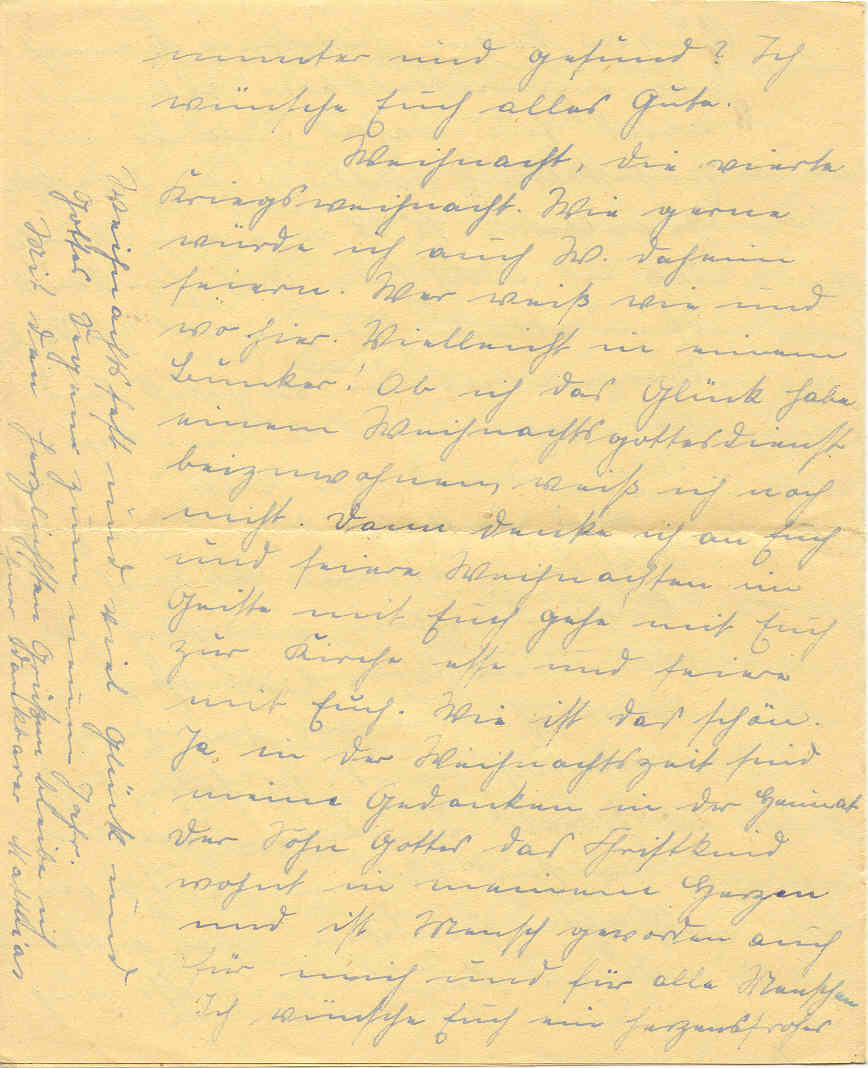 munter und gesund? Ich
wünsche Euch alles Gute.
Weihnacht, die vierte
Kriegsweihnacht. Wie gerne
würde ich auch W. daheim
feiern. Wer weiß wie und
wo hier. Vielleicht in einem
Bunker! Ob ich das Glück habe
einem Weihnachtsgottesdienst
beizuwohnen, weiß ich noch
nicht. Dann denke ich an Euch
und feiere Weihnachten im
Geiste mit Euch gehe mit Euch
zur Kirche esse und feiere
mit Euch. Wie ist das schön.
Ja, in der Weihnachtszeit sind
meine Gedanken in der Heimat
Der Sohn Gottes das Christkind
wohnt in meinem Herzen
und ist Mensch geworden auch
für mich und für alle Menschen
Ich wünsche Euch ein herzensfrohes
Weihnachtsfest und viel Glück und
Gottes Segen zum neuen Jahr.
Mit den herzlichsten Grüßen bleibe ich
Euer dankbarer Matthias